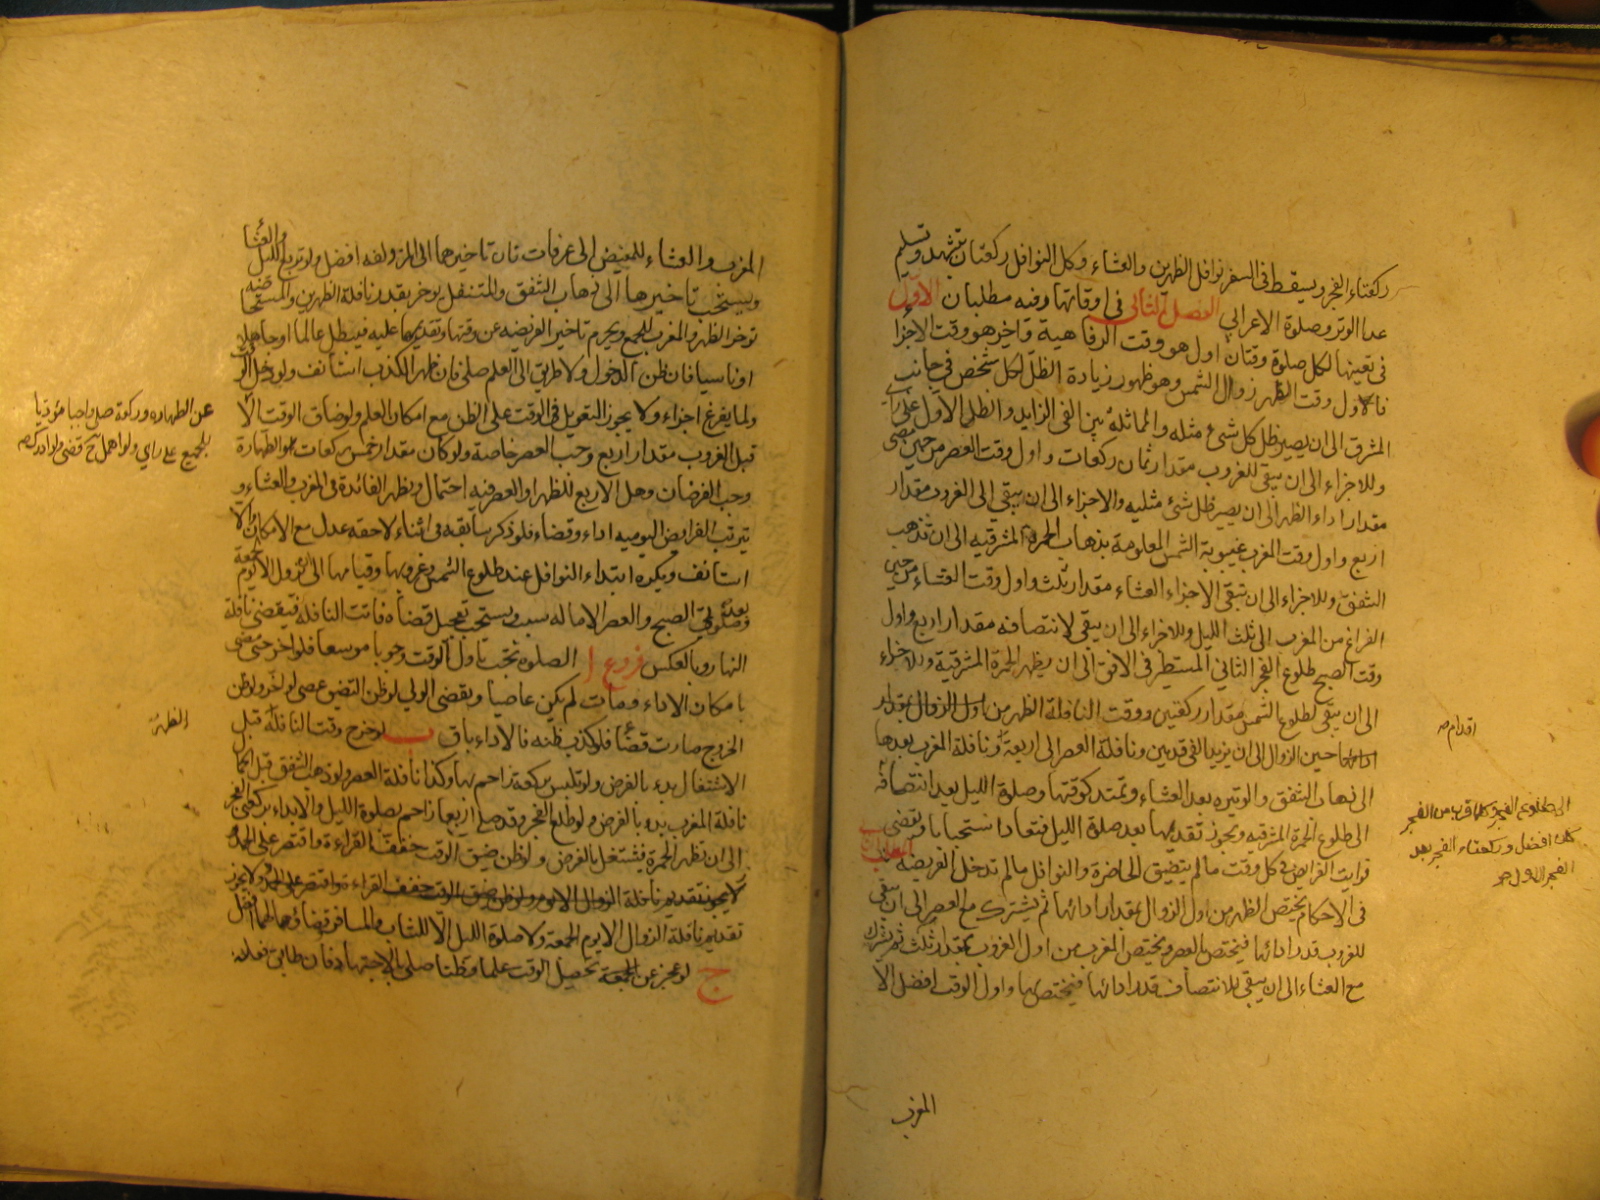 ركعتاء الفجر ويسقط في السفر نوافل الظهرين والعشاء وكل النوافل ركعتان بتشهد وتسليم
عدا الوتر وصلوة الاعرابي الفصل الثاني في اوقاتها وفيه مطلبان الاول
في تعينها لكل صلوة وقتان اول هو وقت الرفاهية واخر هو وقت الاجزا
فالاول وقت الظهر زوال الشمس وهو ظهور زيادة الظل لكل شخص في جانب
المشرق الى ان يصير ظل كل شئ مثله والمماثلة بين الفئ الزايد والظل الاول على راي
وللاجزاء الى ان يبقى للغروب مقدار ثمان ركعات واول وقت العصر من حين مضى
مقدار اداء الظهر الى ان يصير ظل شئ مثليه والاجزاء الى ان يبقى الى الغروب مقدار
اربع واول وقت المغرب غيبوبة الشمس المعلومة بذهاب الحمرة المشرقيه الى ان تذهب
الشفق وللاجزاء الى ان تبقى الاجزاء العشاء مقدار ثلث واول وقت العشاء من حين
الفراغ من المغرب الى ثلث الليل وللاجزاء الى ان يبقى لانتصافه مقدار اربع واول
وقت الصبح طلوع الفجر الثاني المستطير في الافق الى ان يظهر الحمرة المشرقية وللاجزاء
الى ان يبقى لطلوع الشمس مقدار ركعتين ووقت النافلة الظهر من اول الزوال بمقدار
حين الزوال الى ان يزيد الفئ قدمين ونافلة العصر الى اربعة ونافلة المغرب بعدها
الى ذهاب الشفق والوتيره بعد العشاء وتمتد كوقتها وصلوة الليل بعد انتصافه
الى طلوع الحمرة المشرقيه ويجوز تقديمها بعد صلوة الليل فتعاد استحبابا ويقضى
فوايت الفرايض في كل وقت ما لم يتضيق الحاضرة والنوافل ما لم تدخل الفريضة
في الاحكام يختص الظهر من اول الزوال بمقدار ادائها ثم يشترك مع العصر الى ان يبقى
للغروب قدر ادائها فيختص بالعصر ويختص المغرب من اول الغروب بمقدار ثلث ثم يشترك
مع العشاء الى ان يبقى للانتصاف قدر ادائها فيختص بها واول الوقت افضل الا
المغرب
اقدام صح
الى طلوع الفجر وكلما قرب من الفجر
كان افضل وركعتاء الفجر بعد
الفجر الاول
المغرب والعشاء للمفيض الى عرفات فان تاخيرها الى المزدلفه افضل ولو تربع الليل والعشا
ويستحب تاخيرها الى ذهاب الشفق والمتنفل يوخر بقدر نافلة الظهرين والمستحاضه
توخر الظهر والمغرب للجمع ويحرم تاخير الفريضه عن وقتها وتقديمها عليه فيبطل عالما او جاهلا
او ناسيا فان ظن الدخول ولا طريق الى العلم صلى فان ظهر الكذب استانف ولو دخل الوقت
ولما يفرغ اجزاء ولا يجوز التعويل في الوقت على الظن مع امكان العلم ولو ضاق الوقت الا
قبل الغروب مقدار اربع وجب العصر خاصة ولو كان مقدار خمس ركعات والطهارة
وجب الفرضان وهل الاربع للظهر او العصر فيه احتمال ويظهر الفائدة في المغرب والعشاء و
تترتب الفرايض اليوميه اداء وقضاء فلو ذكر سابقه في اثناء لاحقه عدل مع الامكان والا
استانف ويكره ابتداء النوافل عند طلوع الشمس وغروبها وقيامها الى ان تزول الا يوم الجمعة
وبعد صلوتي الصبح والعصر الا ما له سبب ويستحب تعجيل قضاء فاتت النافلة فيقضى نافلة
النهار وبالعكس فروع ا الصلوة تجب باول الوقت وجوبا موسعا فلو اخر حتى مضى
بامكان الاداء ومات لم يكن عاصيا ويقضى الولي لو ظن التضيق عصى لو اخر ولو ظن
الخروج صارت قضاء فلو كذب ظنه فالاداء باق ب لو خرج وقت النافلة قبل
الاشتغال بدء بالفرض ولو تلبس بركعة زاحم بها وكذا نافلة العصر ولو ذهب الشفق قبل اكمال
نافلة المغرب بدء بالفرض ولو طلع الفجر وقد صلى اربعا زاحم بصلوة الليل والا بداء بركعتي الفجر
الى ان تظهر الحمرة فيشتغل بالفرض ولو ظن ضيق الوقت خفف القراءة واقتصر على الحمد
لا يجوز تقديم نافلة الزوال الا يوم ولو ظن ضيق الوقت خفف القراءة واقتصر على الحمد ولا يجوز
تقديم نافلة الزوال الا يوم الجمعة ولا صلوة الليل الا للشاب والمسافر وقضاؤها لهما افضل
ج لو عجز عن تحصيل الوقت علما وظنا صلى بالاجتهاد فان طابق فعله
عن الطهاره وركعة صلى واجبا مؤديا
للجميع على راي ولو اهمل ح قضى ولو ادرك
الظهر